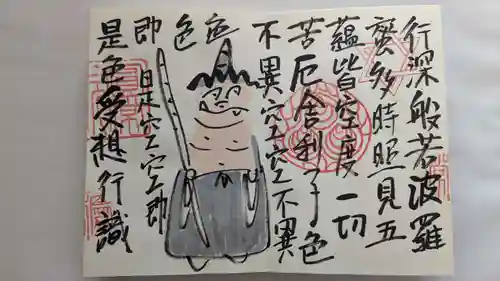 行深般若波羅
蜜多時照見五
蘊皆空度一切
苦厄舎利子色
不異空空不異
色
即
是色受想行識
是空空即